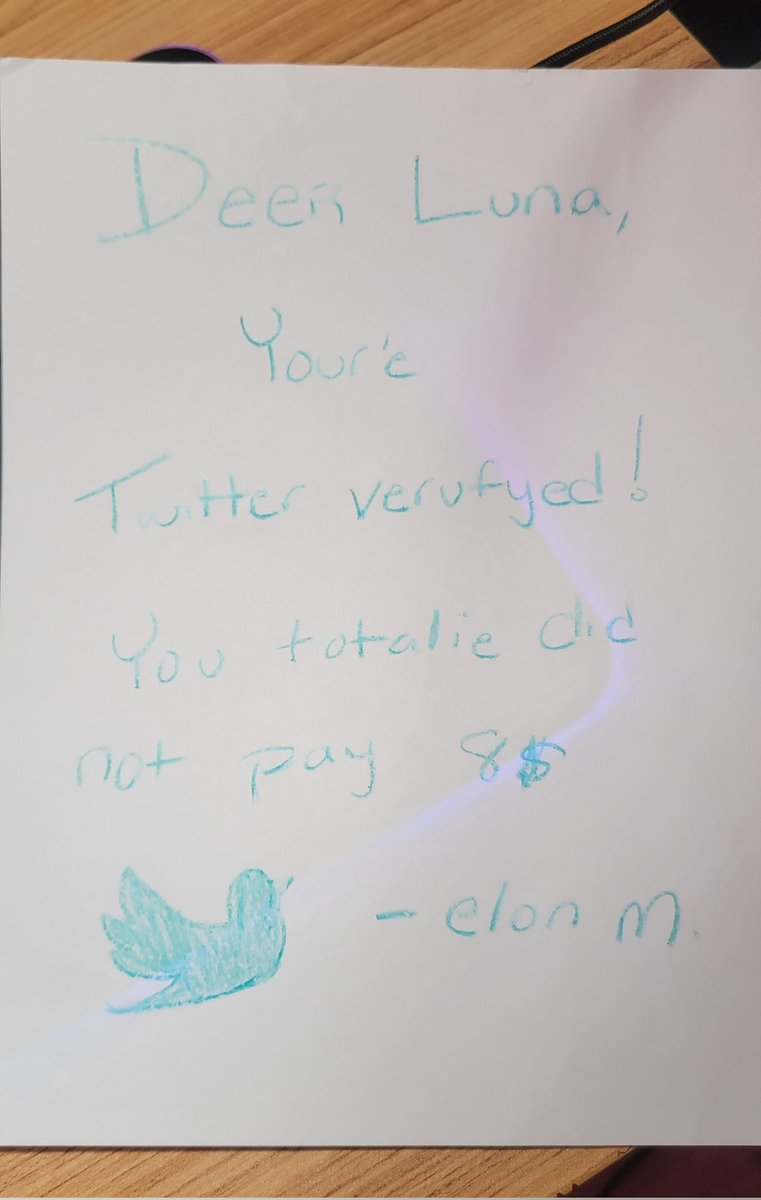 Deer Luna,
Your'e
Twitter verufyed!
You totalie did
not pay 8$
- elon m.